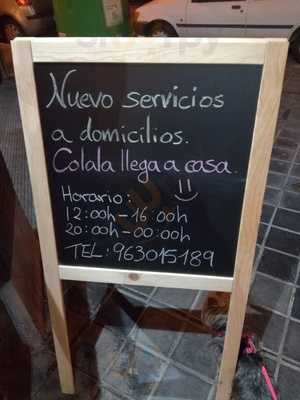 Nuevo servicios
a domicilios.
Colala llega a casa.
Horario:
12:00h-16:00h
20:00h-00:00h
TEL: 963015189